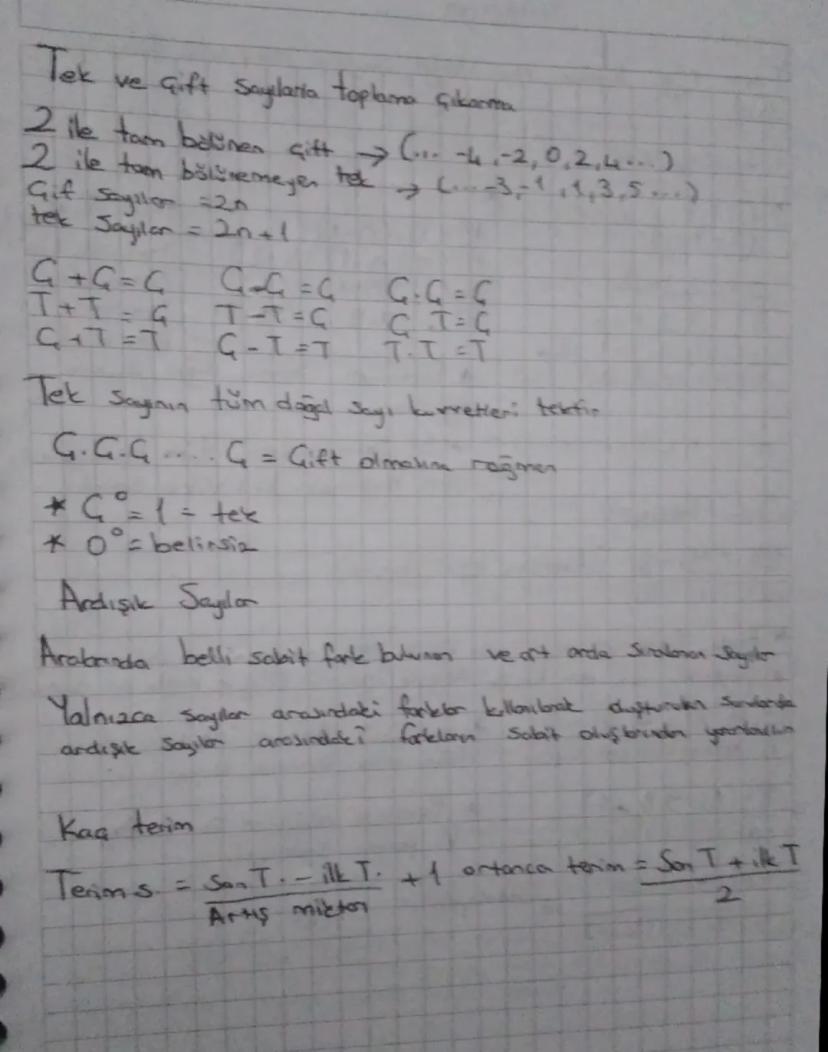 Tek ve Çift Sayılarla toplama Çıkarma
2 ile tam bölünen çift → (... -4, -2, 0, 2, 4 ...)
2 ile tam bölünemeyen tek → (... -3, -1, 1, 3, 5 ...)
Çif sayılar = 2n
tek Sayılar = 2n+1
Ç + Ç = Ç Ç - Ç = Ç Ç . Ç = Ç
T + T = Ç T - T = Ç Ç . T = Ç
Ç + T = T Ç - T = T T . T = T
Tek sayının tüm doğal sayı kuvvetleri tektir
Ç . Ç . Ç .... Ç = Çift olmasına rağmen
* Ç⁰ = 1 = tek
* 0⁰ = belirsiz
Ardışık Sayılar
Aralarında belli sabit fark bulunan ve art arda sıralanan sayılar
Yalnızca sayılar arasındaki farklar kullanılarak oluşturulan sorularda
ardışık sayılar arasındaki farkların sabit oluşlarından
Kaç terim
Terim s. = (Son T. - ilk T.) / Artış miktarı + 1 ortanca terim = (Son T + ilk T) / 2